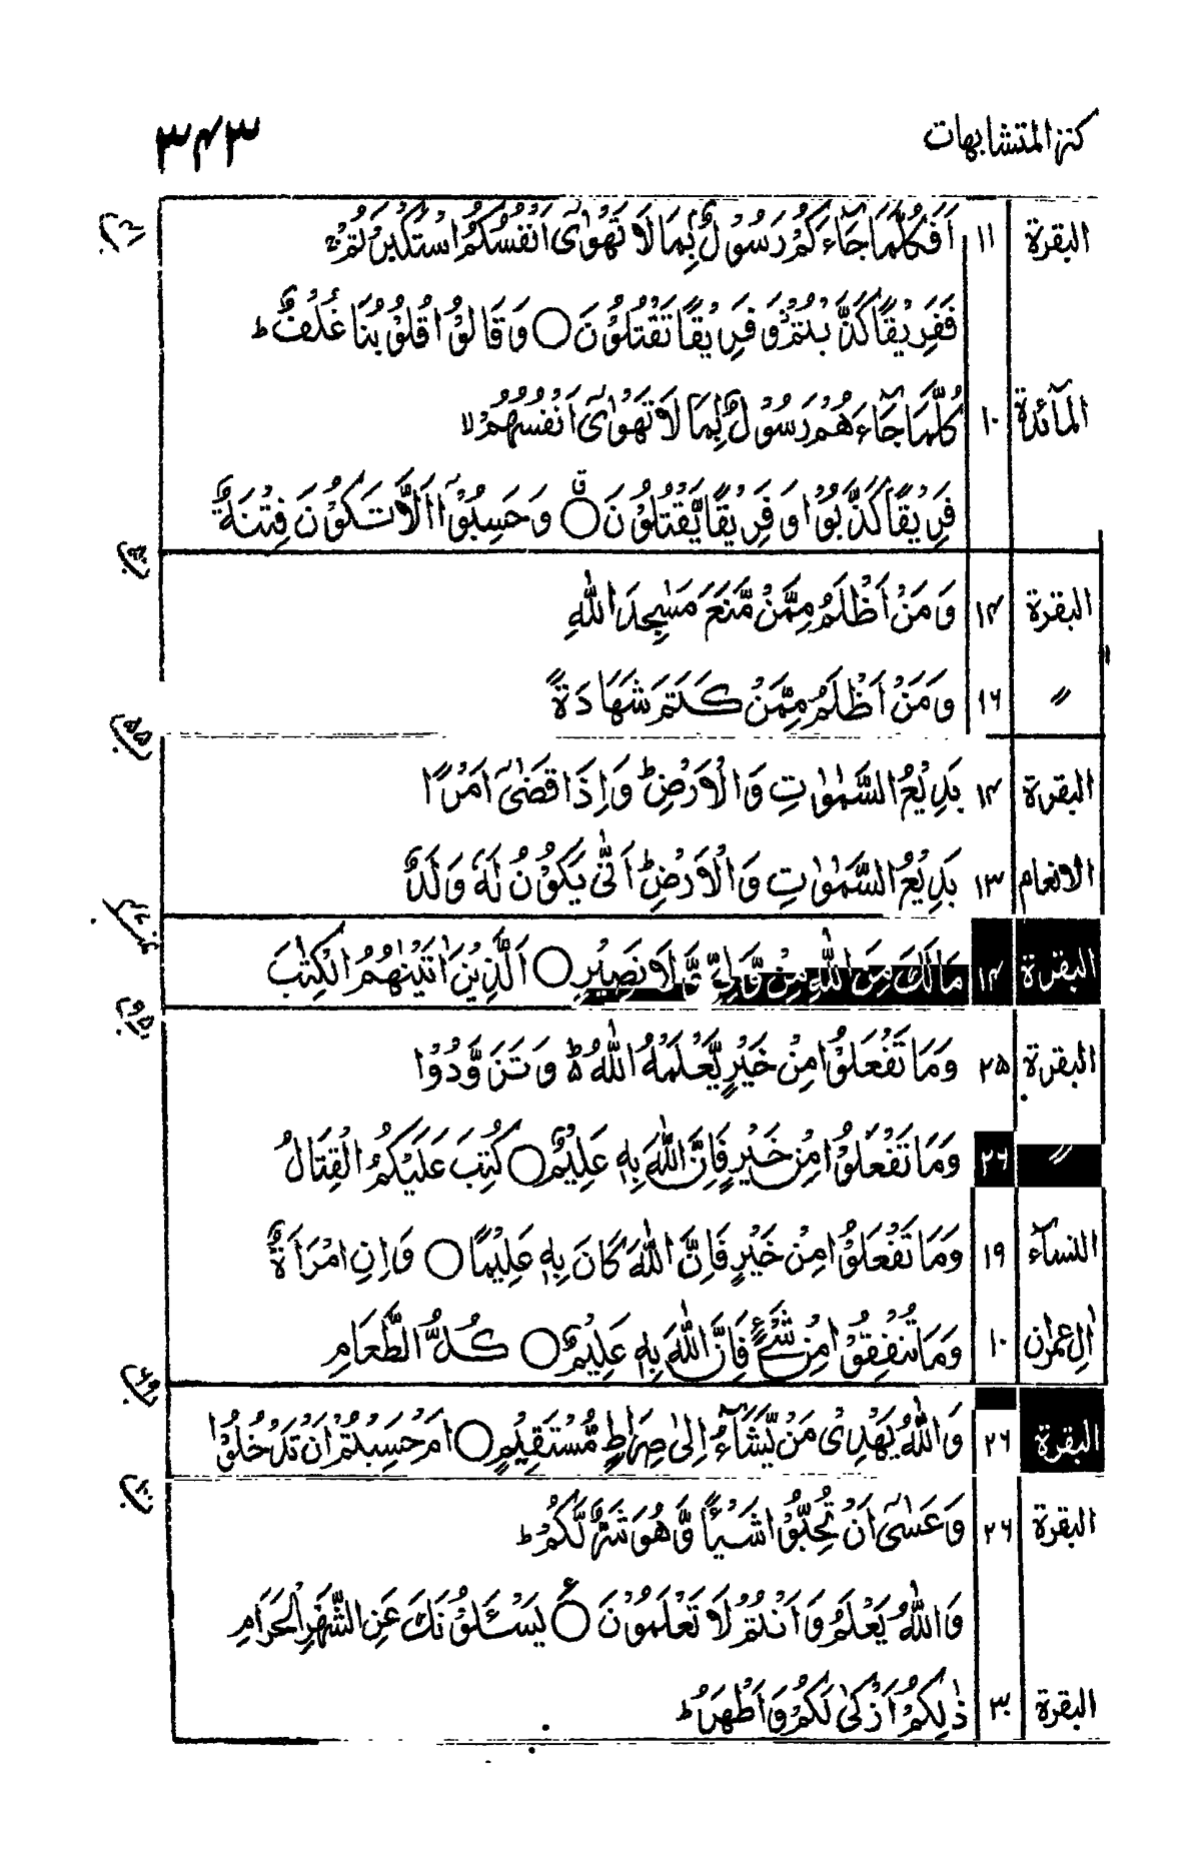 كنز المتشابهات ٣٤٣
البقرة ١١ اَفَكُلَّمَا جَآءَكُمْ رَسُوْلٌۢ بِمَا لَا تَهْوٰۤى اَنْفُسُكُمُ اسْتَكْبَرْتُمْ ۚ
فَفَرِيْقًا كَذَّبْتُمْ ۫ وَ فَرِيْقًا تَقْتُلُوْنَ ○ وَ قَالُوْا قُلُوْبُنَا غُلْفٌ ؕ
المآئدة ١٠ كُلَّمَا جَآءَهُمْ رَسُوْلٌۢ بِمَا لَا تَهْوٰۤى اَنْفُسُهُمْ ۙ
فَرِيْقًا كَذَّبُوْا وَ فَرِيْقًا يَّقْتُلُوْنَ ○ ۗ وَ حَسِبُوْۤا اَلَّا تَكُوْنَ فِتْنَةٌ
البقرة ١٤ وَ مَنْ اَظْلَمُ مِمَّنْ مَّنَعَ مَسٰجِدَ اللّٰهِ
〃 ١٦ وَ مَنْ اَظْلَمُ مِمَّنْ كَتَمَ شَهَادَةً
البقرة ١٤ بَدِيْعُ السَّمٰوٰتِ وَ الْاَرْضِ ؕ وَ اِذَا قَضٰۤى اَمْرًا
الانعام ١٣ بَدِيْعُ السَّمٰوٰتِ وَ الْاَرْضِ ؕ اَنّٰى يَكُوْنُ لَهٗ وَلَدٌ
البقرة ١٤ مَا لَكَ مِنَ اللّٰهِ مِنْ وَّلِيٍّ وَّ لَا نَصِيْرٍ ○ اَلَّذِيْنَ اٰتَيْنٰهُمُ الْكِتٰبَ
البقرة ٢٥ وَ مَا تَفْعَلُوْا مِنْ خَيْرٍ يَّعْلَمْهُ اللّٰهُ ؕ وَ تَزَوَّدُوْا
〃 ٢٦ وَ مَا تَفْعَلُوْا مِنْ خَيْرٍ فَاِنَّ اللّٰهَ بِهٖ عَلِيْمٌ ○ كُتِبَ عَلَيْكُمُ الْقِتَالُ
النسآء ١٩ وَ مَا تَفْعَلُوْا مِنْ خَيْرٍ فَاِنَّ اللّٰهَ كَانَ بِهٖ عَلِيْمًا ○ وَ اِنِ امْرَاَةٌ
اٰل عمرٰن ١٠ وَ مَا تُنْفِقُوْا مِنْ شَيْءٍ فَاِنَّ اللّٰهَ بِهٖ عَلِيْمٌ ○ كُلُّ الطَّعَامِ
البقرة ٢٦ وَ اللّٰهُ يَهْدِيْ مَنْ يَّشَآءُ اِلٰى صِرَاطٍ مُّسْتَقِيْمٍ ○ اَمْ حَسِبْتُمْ اَنْ تَدْخُلُوْا
البقرة ٢٦ وَ عَسٰۤى اَنْ تُحِبُّوْا شَيْـًٔا وَّ هُوَ شَرٌّ لَّكُمْ ؕ
وَ اللّٰهُ يَعْلَمُ وَ اَنْتُمْ لَا تَعْلَمُوْنَ ○ ع يَسْـَٔلُوْنَكَ عَنِ الشَّهْرِ الْحَرَامِ
البقرة ٣٠ ذٰلِكُمْ اَزْكٰى لَكُمْ وَ اَطْهَرُ ؕ